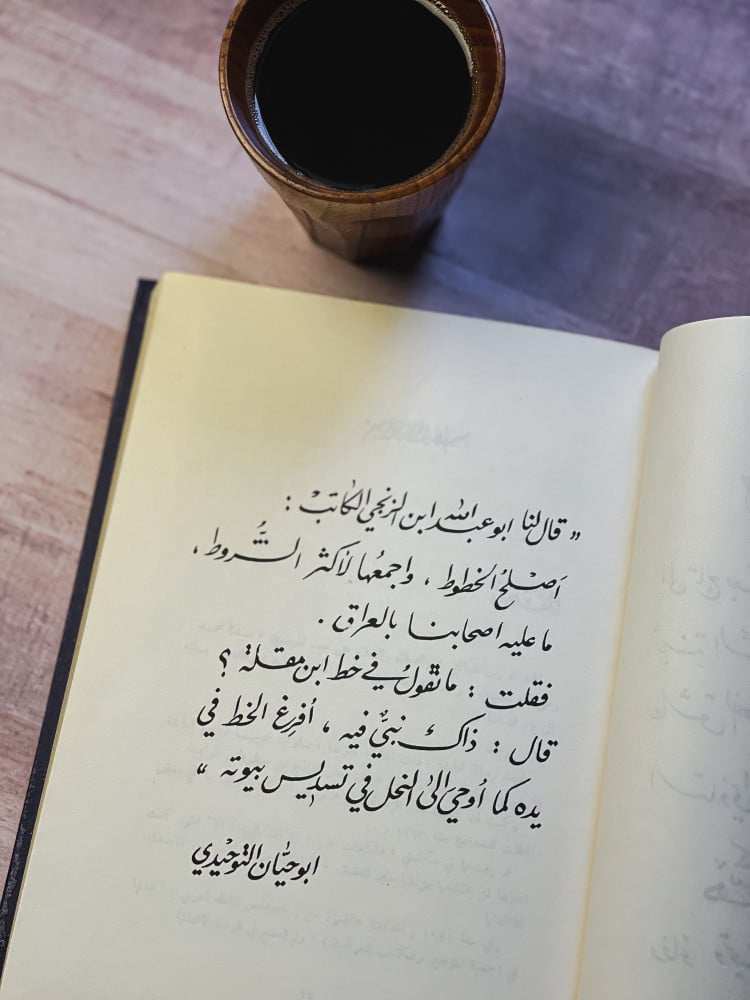 « قال لنا ابو عبد الله ابن الزنجي الكاتب :
أصلحُ الخطوط ، واجمعُها لأكثر الشُّروط ،
ما عليه اصحابنا بالعراق .
فقلت : ما تقولُ في خط ابن مقلة ؟
قال : ذاك نبيٌّ فيه ، أُفرِغ الخط في
يده كما أُوحيَ الىٰ النحل في تسديس بيوته »
ابو حيّان التوحيدي